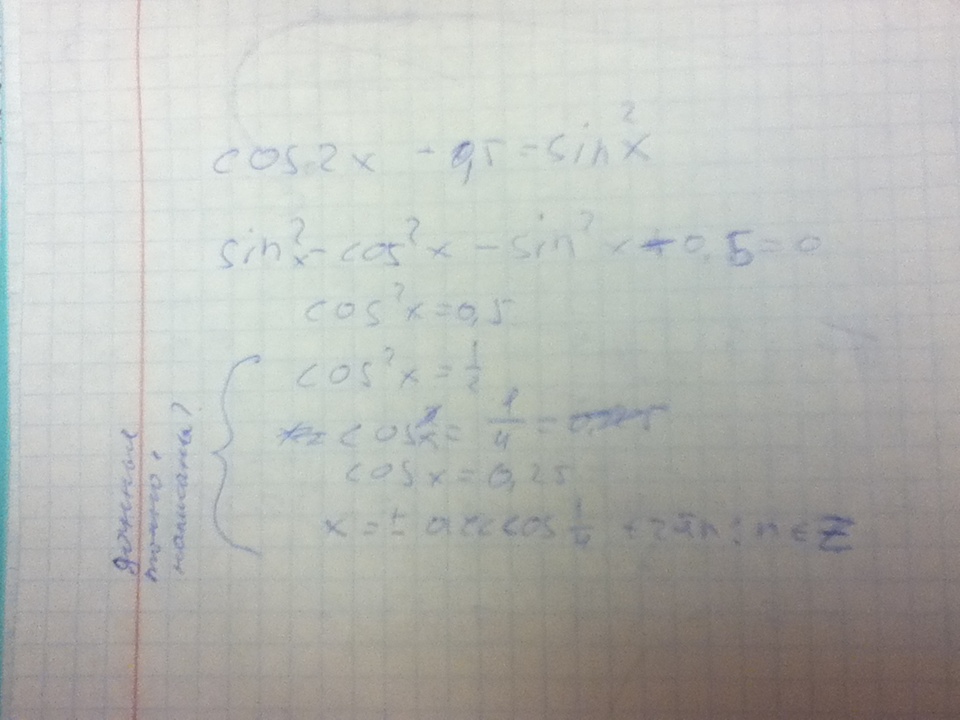 cos2x - 0,5 = sin²x
sin²x - cos²x - sin²x + 0,5 = 0
cos²x = 0,5
cos²x = 1/2
cosx = 1/4 =
cosx = 0,25
x = ± arccos 1/4 + 2πn; n ∈ Z